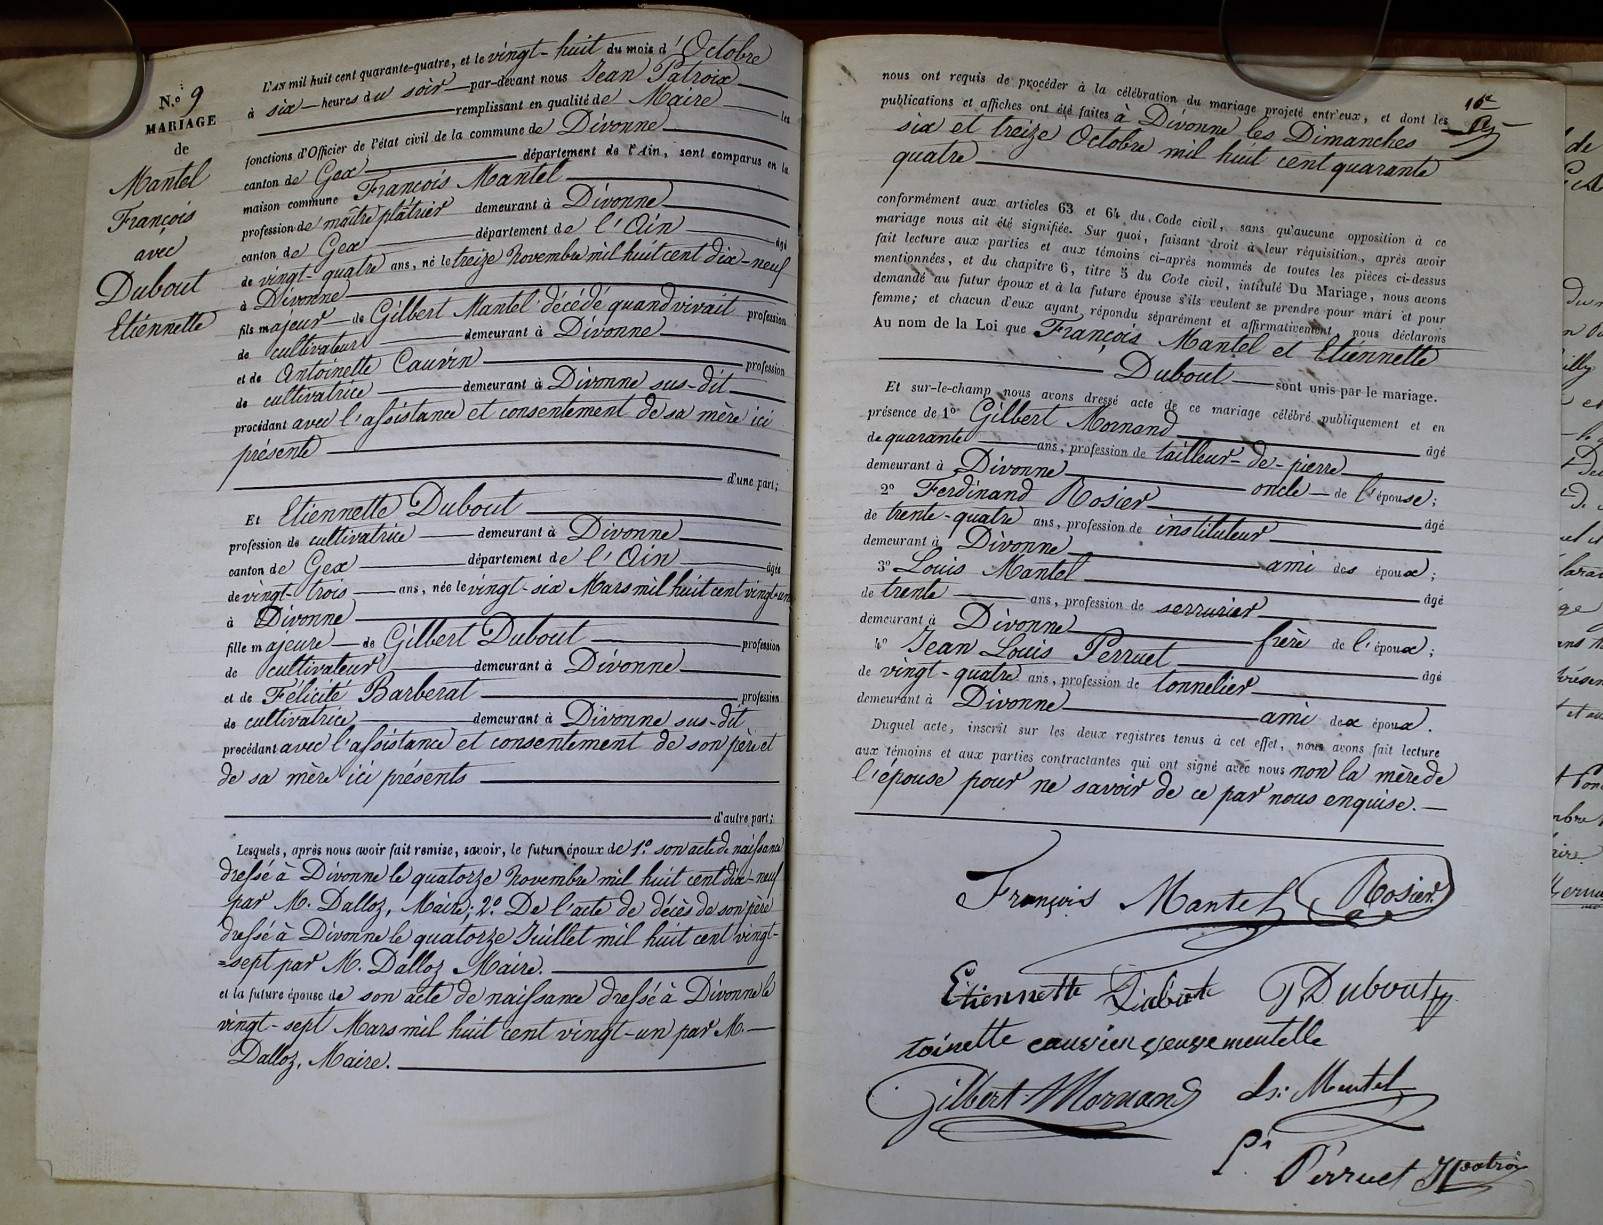 N.º 9
MARIAGE
de
Mantel
François
avec
Dubout
Etiennette
L'AN mil huit cent quarante-quatre, et le vingt-huit du mois d'Octobre
à six heures du soir par-devant nous Jean Patroix
remplissant en qualité de Maire les
fonctions d'Officier de l'état civil de la commune de Divonne
canton de Gex département de l'Ain, sont comparus en la
maison commune François Mantel
profession de maître plâtrier demeurant à Divonne
canton de Gex département de l'Ain âgé
de vingt-quatre ans, né le treize Novembre mil huit cent dix-neuf
à Divonne
fils majeur de Gilbert Mantel décédé quand vivait profession
de cultivateur demeurant à Divonne
et de Antoinette Cauvin profession
de cultivatrice demeurant à Divonne sus-dit
procédant avec l'assistance et consentement de sa mère ici
présente
d'une part;
Et Etiennette Dubout
profession de cultivatrice demeurant à Divonne
canton de Gex département de l'Ain âgée
de vingt-trois ans, née le vingt-six Mars mil huit cent vingt-un
à Divonne
fille majeure de Gilbert Dubout profession
de cultivateur demeurant à Divonne
et de Félicité Barberat profession
de cultivatrice demeurant à Divonne sus-dit
procédant avec l'assistance et consentement de son père et
de sa mère ici présents
d'autre part;
Lesquels, après nous avoir fait remise, savoir, le futur époux de 1.º son acte de naissance
dressé à Divonne le quatorze Novembre mil huit cent dix-neuf
par M. Dalloz, Maire; 2.º De l'acte de décès de son père
dressé à Divonne le quatorze Juillet mil huit cent vingt-
=sept par M. Dalloz Maire.
et la future épouse de son acte de naissance dressé à Divonne le
vingt-sept Mars mil huit cent vingt-un par M.
Dalloz, Maire.
16e
nous ont requis de procéder à la célébration du mariage projeté entr'eux, et dont les
publications et affiches ont été faites à Divonne les Dimanches
six et treize Octobre mil huit cent quarante
quatre
conformément aux articles 63 et 64 du Code civil, sans qu'aucune opposition à ce
mariage nous ait été signifiée. Sur quoi, faisant droit à leur réquisition, après avoir
fait lecture aux parties et aux témoins ci-après nommés de toutes les pièces ci-dessus
mentionnées, et du chapitre 6, titre 5 du Code civil, intitulé Du Mariage, nous avons
demandé au futur époux et à la future épouse s'ils veulent se prendre pour mari et pour
femme; et chacun d'eux ayant répondu séparément et affirmativement, nous déclarons
Au nom de la Loi que François Mantel et Etiennette
Dubout sont unis par le mariage.
Et sur-le-champ nous avons dressé acte de ce mariage célébré publiquement et en
présence de 1º Gilbert Mornand âgé
de quarante ans, profession de tailleur-de-pierre
demeurant à Divonne oncle de l'épouse;
2º Ferdinand Rosier âgé
de trente-quatre ans, profession de instituteur
demeurant à Divonne ami des époux;
3º Louis Mantel âgé
de trente ans, profession de serrurier
demeurant à Divonne frère de l'époux;
4º Jean Louis Perruet âgé
de vingt-quatre ans, profession de tonnelier
demeurant à Divonne ami dex époux.
Duquel acte, inscrit sur les deux registres tenus à cet effet, nous avons fait lecture
aux témoins et aux parties contractantes qui ont signé avec nous non la mère de
l'épouse pour ne savoir de ce par nous enquise.
François Mantel Rosier
Etiennette Dubout G Dubout
toinette cauvien veuve mentelle
Gilbert Mornand Ls: Mentel
Perruet JPatroix